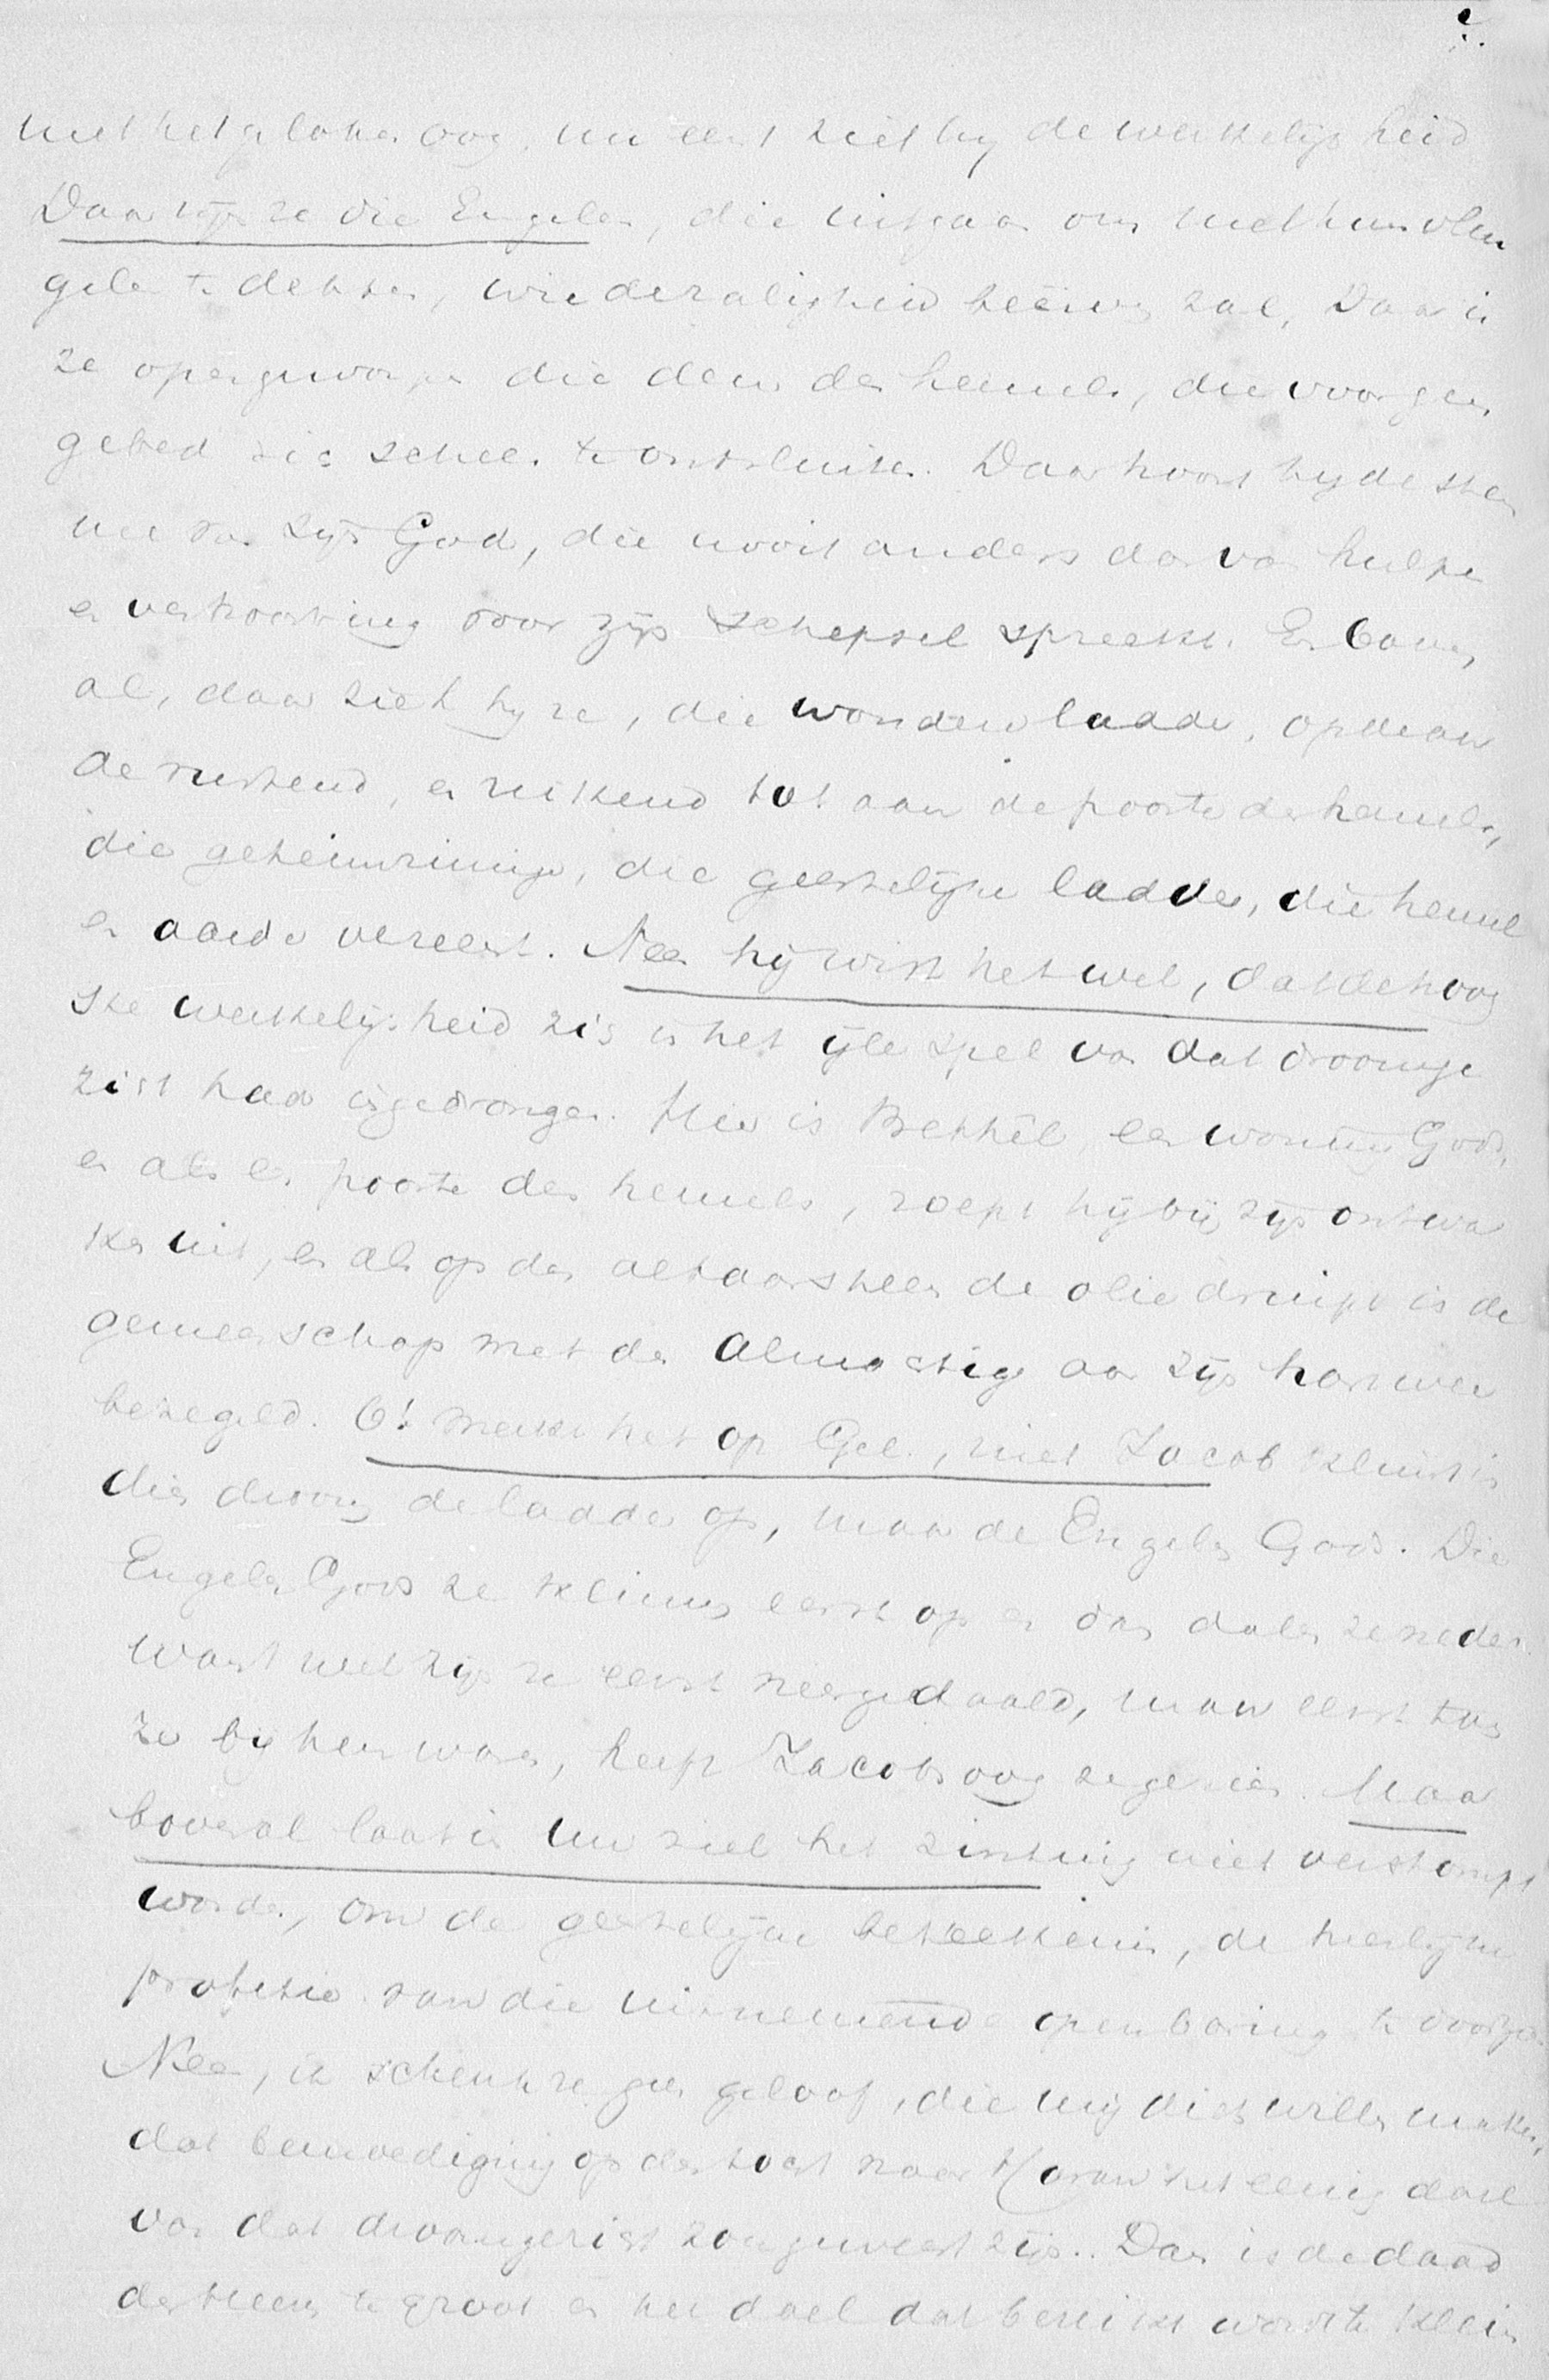 met het geloken oog. nu eerst ziet hij de werkelijkheid
Daar zijn ze die Engelen, die uitgaan om met hun vleu
gelen te dekken, wie de zaligheid beërven zal. Daar is
ze opengeworpen die deur des hemels, die voor geen
gebed zig scheen te ontsluiten. Daar hoort hij de stem
me van zijn God, die nooit anders dan van hulpe
en vertroosting voor zijn schepsel spreekt. En boven
al, daar ziet hij ze, die wonderladder, op de aar
de rustend, en reikend tot aan de poorte des hemels,
die geheimzinnige, die geestelijke ladder, die hemel
en aarde vereent. Neen hij wist het wel, dat de hoog
ste werkelijkheid zig in het ijle spel van dat droomge
zigt had ingedrongen. Hier is Bethêl, een woning Gods,
en als een poorte des hemels, roept hij bij zijn ontwa
ken uit, en als op den altaarsteen de olie druipt is de
gemeenschap met den Almactige aan zijn hart weer
bezegeld. O! merkt het op Gel., niet Jacob klimt in
dien droom de ladder op, maar de Engelen Gods. Die
Engelen Gods ze klimmen eerst op en dan dalen ze neder.
want wel zijn ze eerst neergedaald, maar eerst toen
ze bij hem waren, heeft Jacobs oog ze gezien. Maar
bovenal laat in uw ziel het zintuig niet verstompt
worden, om de geestelijke beteekenis, de heerlijke
profetie van die uitnemende openbaring te
Neen, ik schenk ze geen geloof, die mij diets willen maken,
dat bemoediging op den togt naar Haran het eenig doel
van dat droomgezigt zou geweest zijn. Dan is de daad
des Heeren te groot en het doel dat bereikt wordt te klein